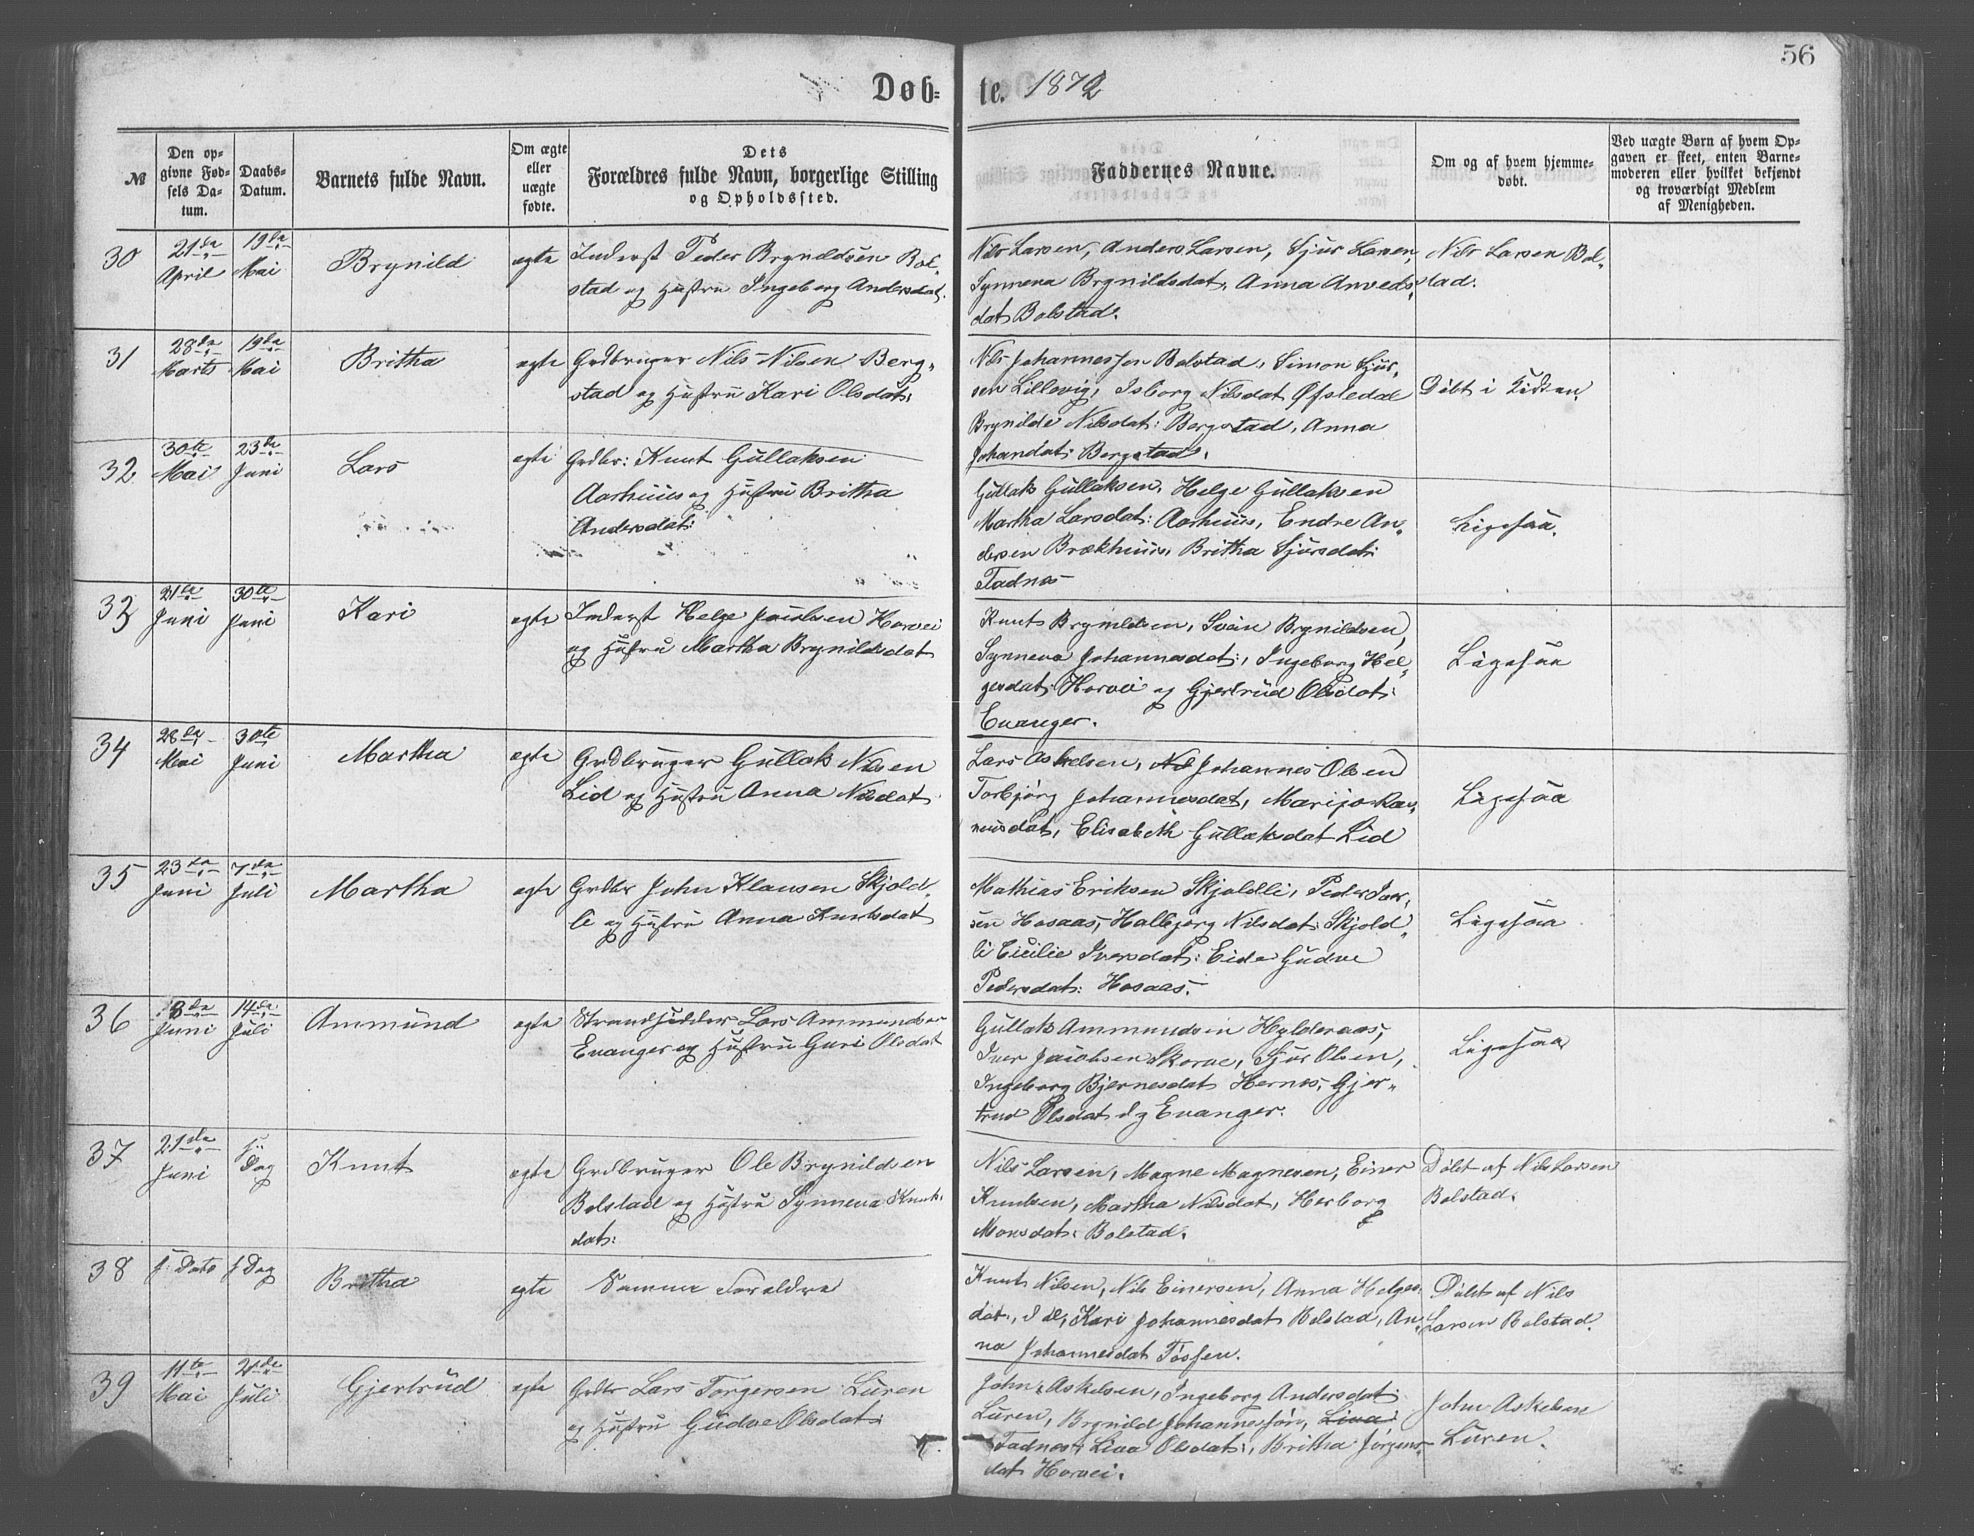 56
Døb= te. 1872
№
Den op-
givne Fød-
sels Da-
tum.
Daabs-
Datum.
Barnets fulde Navn.
Om ægte
eller
uægte
fødte.
Dets
Forældres fulde Navn, borgerlige Stilling
og Opholdssted.
Faddernes Navne.
Om og af hvem hjemme-
døbt.
Ved uægte Børn af hvem Op-
gaven er skeet, enten Barne-
moderen eller hvilket bekjendt
og troværdigt Medlem
af Menigheden.
30
21de
April
19de
Mai
Brynild
ægte
Inderst Peder Brynildsen Bol-
stad og Hustru Ingeborg Andersdat.
Nils Larsen, Anders Larsen, Sjur Larsen,
Synneva Brynildsdat, Anna Anveds-
dat Bolstad.
Nils Larsen Bol-
stad.
31
28de
Marts
19de
Mai
Britha
ægte
Grdbruger Nils Nilsen Berg-
stad og Hustru Kari Olsdat:
Nils Johannesson Bolstad, Simon Sjur-
sen Lillevig, Isborg Nilsdat Øfsledal
Brynilde Nilsdat: Bergstad, Anna
Johandat: Bergstad.
Døbt i Kirken
32
30te
Mai
23de
Juni
Lars
ægte
Grdbr: Knut Gullaksen
Aarhuus og Hustru Britha
Andersdat:
Gullak Gullaksen, Helge Gullaksen
Martha Larsdat: Aarhuus, Endre An-
dersen Brækhuus, Britha Sjursdat:
Fadnes
Ligesaa.
33
21de
Juni
30te
Juni
Kari
ægte
Inderst Helge Jacobsen Horvei
og Hustru Martha Brynildsdat
Knut Brynildsen, Svein Brynildsen,
Synneva Johannesdat:, Ingeborg Hel-
gesdat: Horvei og Gjertrud Olsdat:
Evanger.
Ligesaa
34
28de
Mai
30te
Juni
Martha
ægte
Grdbruger Gullak Nilsen
Lid og Hustru Anna Nilsdat
Lars Askelsen, Johannes Olsen
Torbjørg Johannesdat, Marijo Ras-
musdat, Elisabeth Gullaksdat Lid
Ligesaa
35
23de
Juni
7de
Juli
Martha
ægte
Grdbr John Klausen Skjold-
li og Hustru Anna Knutsdat
Mathias Eriksen Skjoldli, Peder Iver-
sen Hosaas, Halbjørg Nilsdat: Skjold-
li Cicilie Iversdat: Eide Gudve
Pedersdat: Hosaas.
Ligesaa
36
8de
Juni
14de
Juli
Ammund
ægte
Strandsidder Lars Ammundsen
Evanger og Hustru Guri Olsdat
Gullak Ammundsen Hylderaas,
Iver Jacobsen Skorve, Sjur Olsen,
Ingeborg Bjørnesdat Hernes, Gjer-
trud Olsdat Evanger.
Ligesaa
37
21de
Juni
s:
Dag
Knut
ægte
Grdbruger Ole Brynildsen
Bolstad og Hustru Synneva Knuts-
dat:
Nils Larsen, Magne Magnesen, Einer
Knutsen, Martha Nilsdat, Herborg
Monsdat: Bolstad.
Døbt af Nils Larsen
Bolstad.
38
s: Dato
s: Dag
Britha
ægte
Samme Forældre
Knut Nilsen, Nils Einersen, Anna Helges-
dat:, Kari Johannesdat Bolstad, An-
na Johannesdat Fosfen.
Døbt af Nils
Larsen Bolstad.
39
11te
Mai
21de
Juli
Gjertrud
ægte
Grdbr Lars Torgersen Luren
og Hustru Gudve Olsdat:
John Askelsen, Ingeborg Andersdat
Luren, Brynild Johannessøn, Liva
Fadnes, Liva Olsdat:, Britha Jørgens-
dat Horvei.
John Askelsen
Luren.